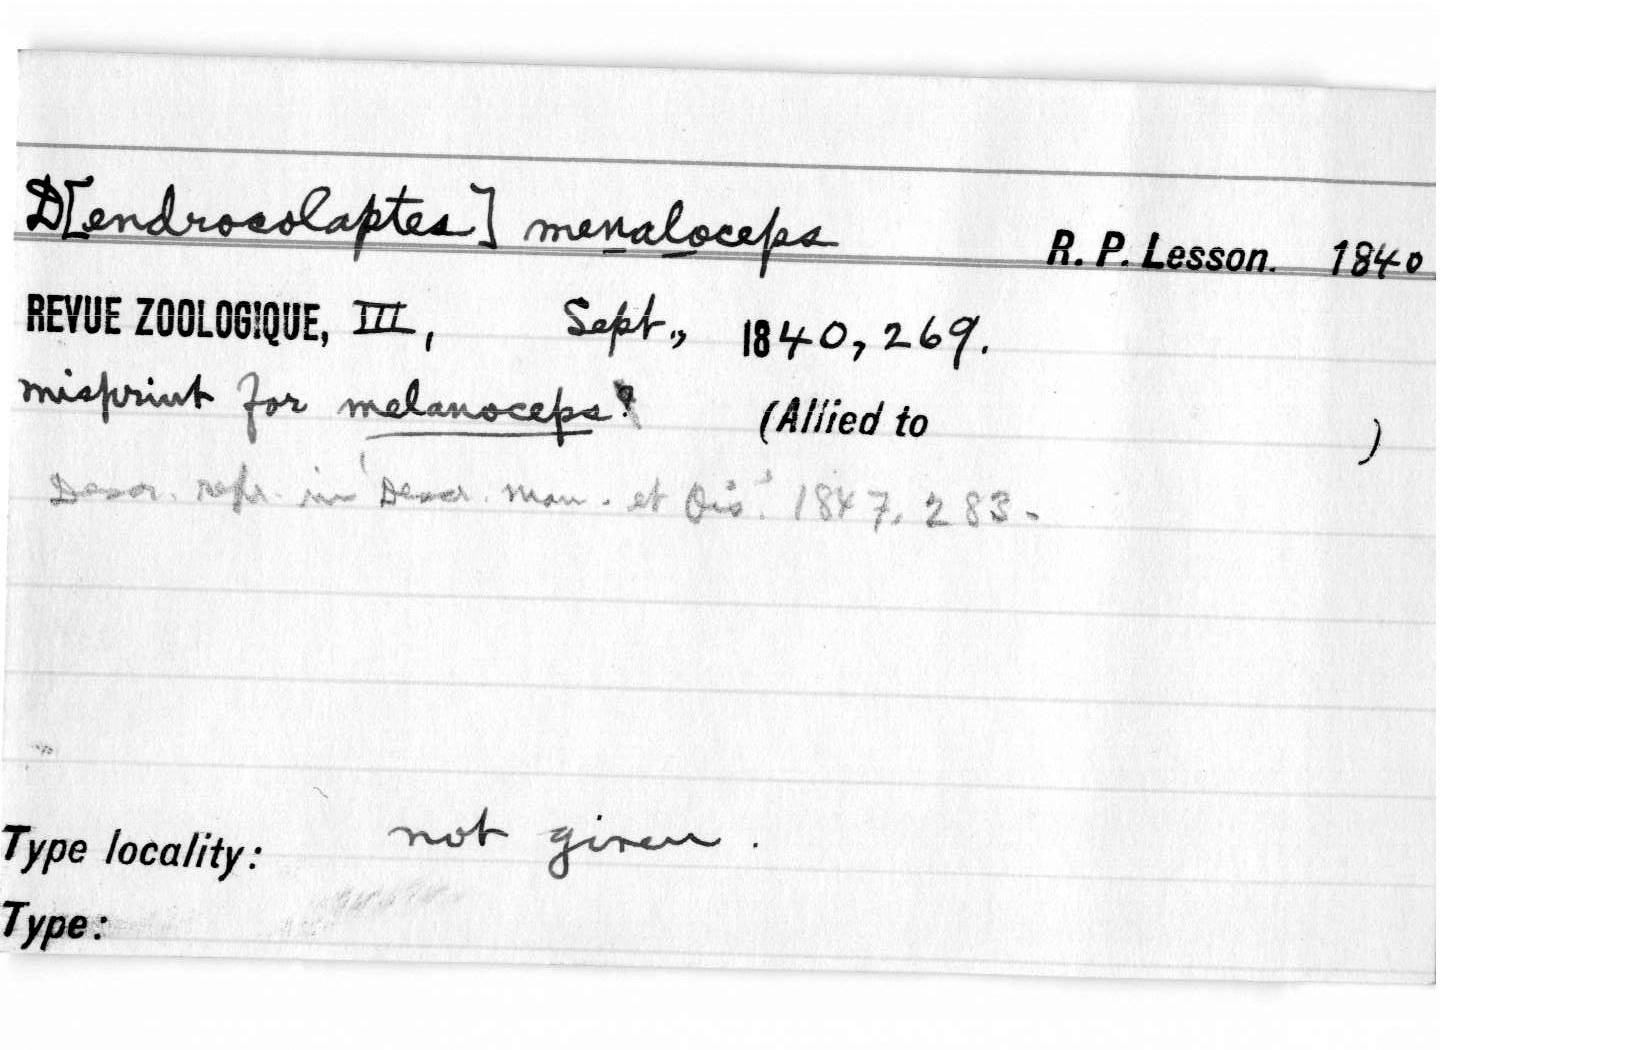 D[endrocolaptes] menaloceps R. P. Lesson. 1840
REVUE ZOOLOGIQUE, III, Sept., 1840, 269.
misprint for melanoceps? (Allied to )
Descr. repr. in 'Descr. Mam. et Ois.' 1847, 283.
Type locality: not given.
Type: